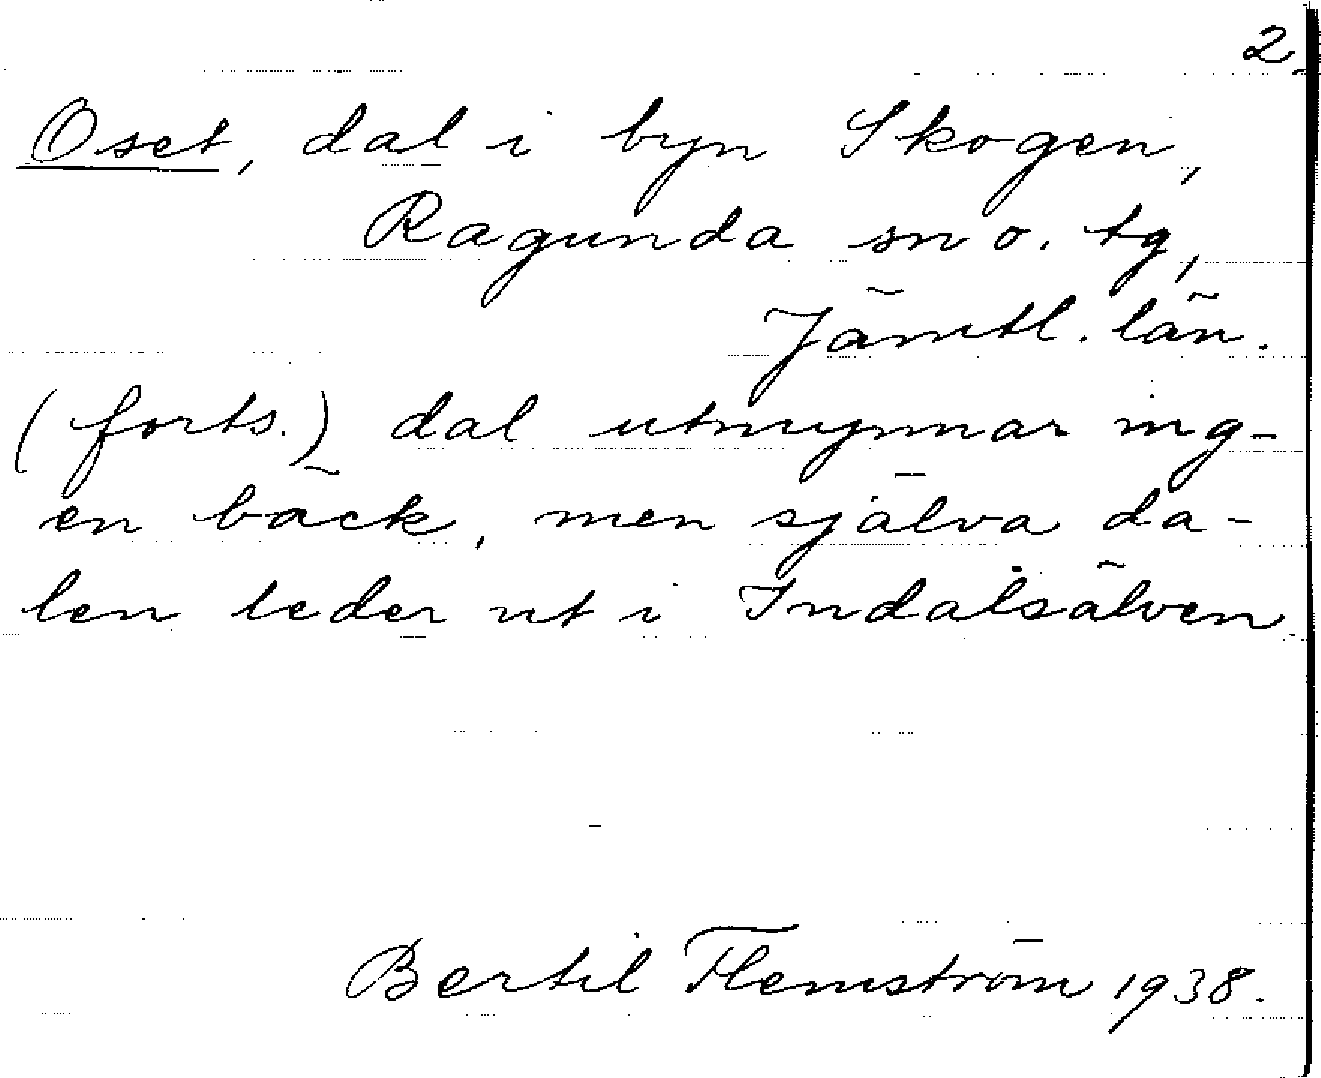 2.
Oset, dal i byn Skogen,
Ragunda sn o. tg,
Jämtl. län.
(forts.) dal utmynnar ing-
en bäck, men själva da-
len leder ut i Indalsälven
Bertil Flemström 1938.